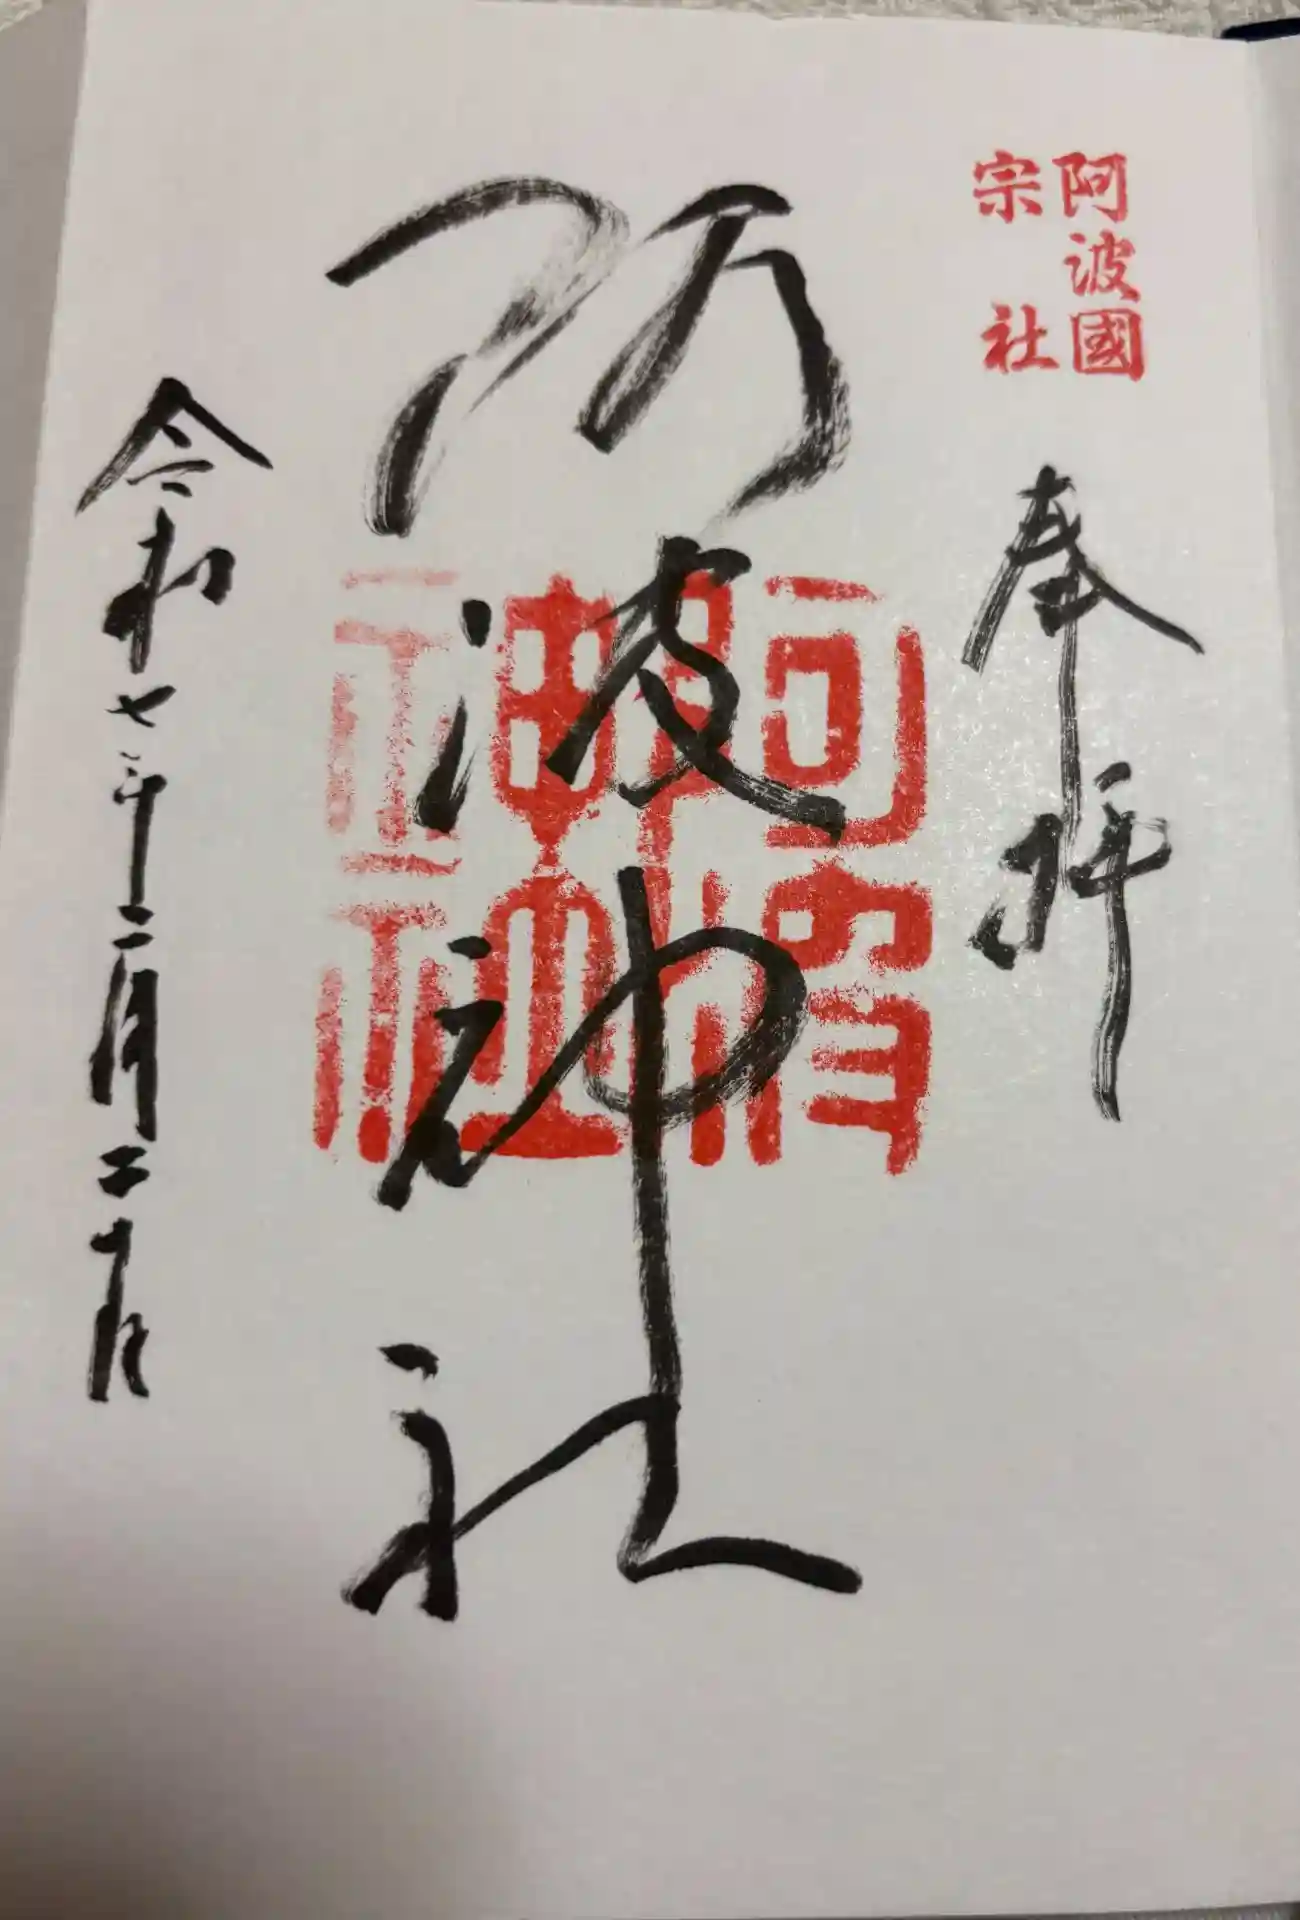 阿波國
宗社
奉拝
阿波神社
阿波神社
令和七年二月二十日